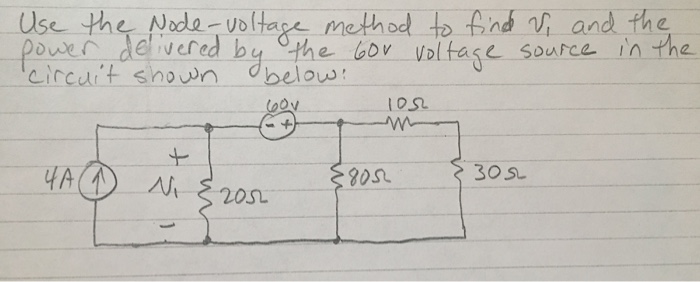 Use the Node-voltage method to find v₁ and the
power delivered by the 60v voltage source in the
circuit shown below:
60v
10Ω
- +
+
4A
V₁
20Ω
80Ω
30Ω
-